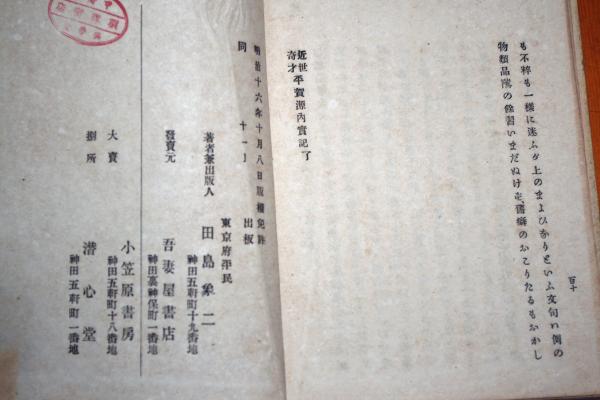 も不粹も一樣に迷ふが上のまよひありといふ文句ハ例の
物類品隲の餘習いまだぬけを舊癖のおこりたるもをかし
百十
近世
奇才
平賀源内實記了
明治十六年十月八日版權免許
同 十一月 出板
東京府平民
著者兼出版人 田島象二
神田五軒町十九番地
發賣元 吾妻屋書店
神田裏神保町一番地
大賣 小笠原書房
神田五軒町十八番地
捌所 潛心堂
神田五軒町一番地